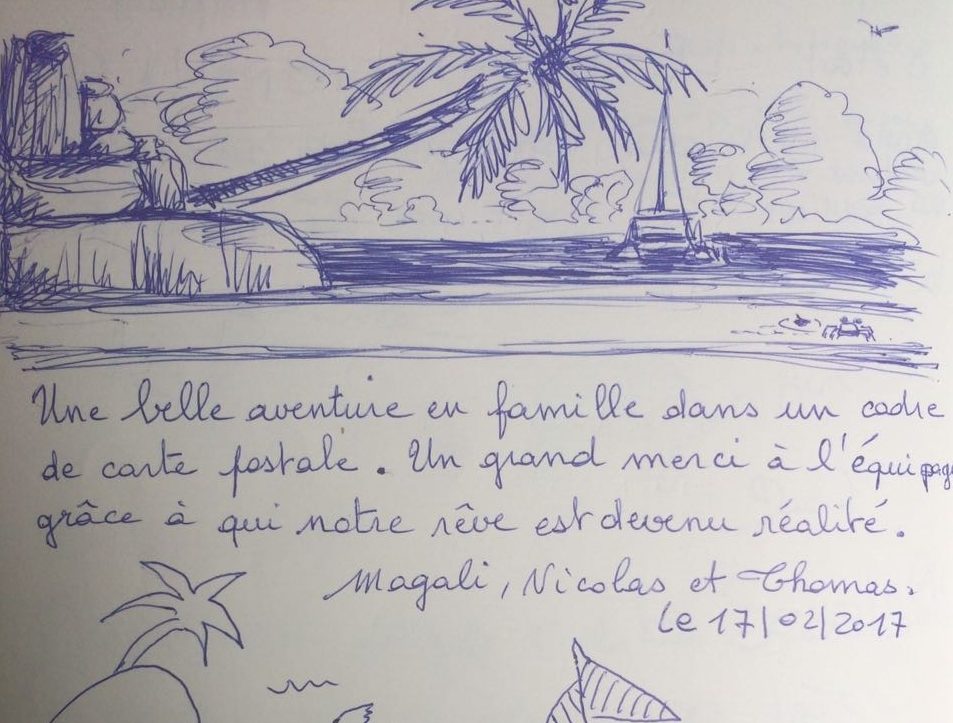 Une belle aventure en famille dans un cadre
de carte postale. Un grand merci à l'équipage
grâce à qui notre rêve est devenu réalité.
Magali, Nicolas et Thomas.
Le 17/02/2017